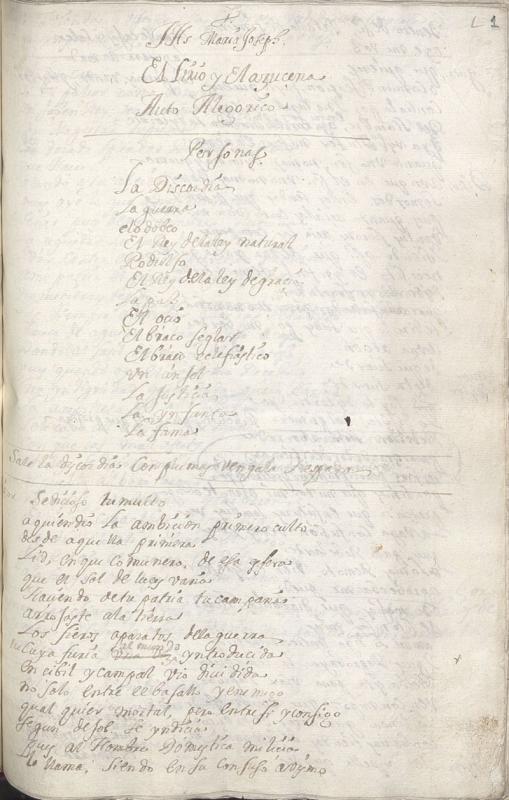 1
JHs Maria Joseph.
El lirio y El azucena
Auto Alegorico
Personas.
La Discordia
La guerra
el odoceo
El Rey de la ley natural
Rodulfo
El Rey de la ley de gracia
La paz
El ocio
El braço seglar
El braço eclesiastico
Un ansel
La justicia
La ynfanta
La fama
Sale la discordia con plumas y vengala
Sedicioso tumulto
a quien dio la ambicion primero culto
desde aquella primera
Lid, en que comunero, de esa esfera
que el sol de luces varia
Haciendo de tu patria tu campaña
arrojaste a la tierra
Los fieros aparatos de la guerra
Cuya furia el mundo yntroducida
en cibil y campal vio dividida
no solo entre el basallo y enemigo
qual quier mortal, pero entre si y consigo
segun desol se yndicia
pues al Hombre Domestica milicia
le llama, siendo en su confuso abismo